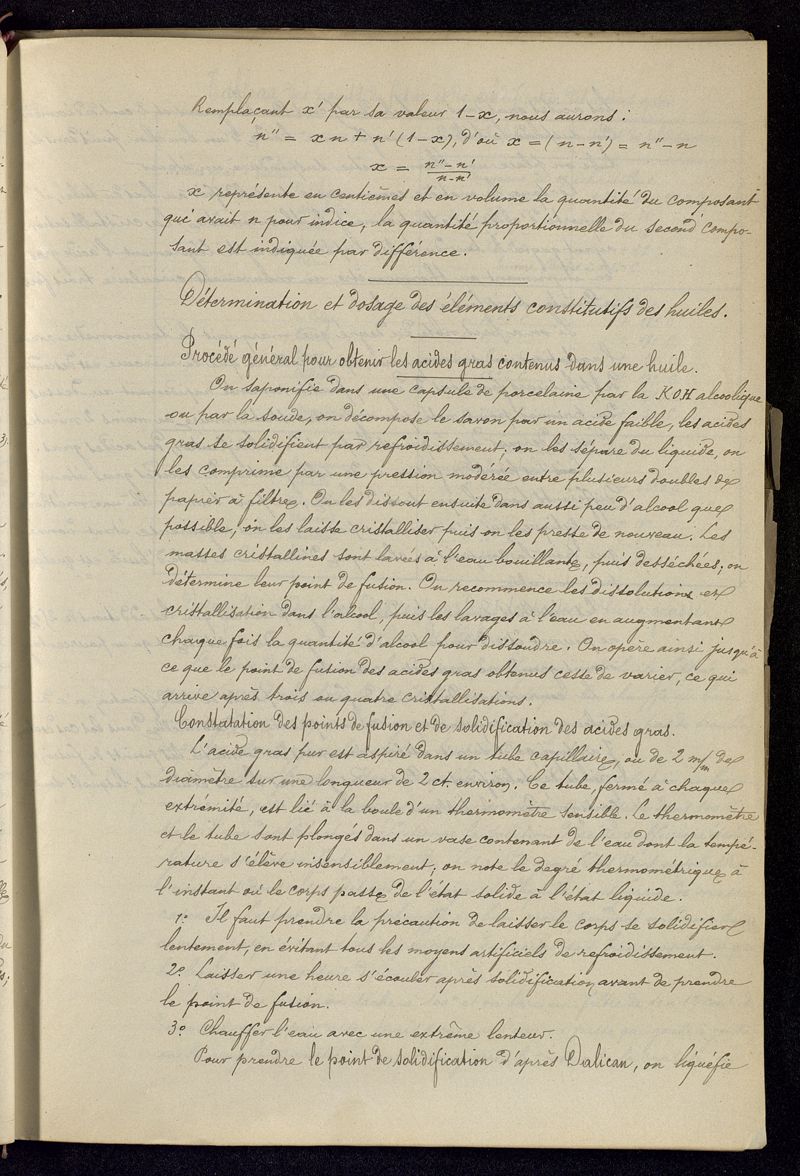 Remplaçant x' par sa valeur 1-x, nous aurons :
n'' = xn + n' (1-x), d'où x = (n-n') = n''-n
x = n''-n' / n-n'
x représente en centièmes et en volume la quantité du composant
qui avait n pour indice, la quantité proportionnelle du second compo-
sant est indiquée par différence.
Détermination et dosage des éléments constitutifs des huiles.
Procédé général pour obtenir les acides gras contenus dans une huile.
On saponifie dans une capsule de porcelaine par la KOH alcoolique
ou par la soude, on décompose le savon par un acide faible, les acides
gras se solidifient par refroidissement; on les sépare du liquide, on
les comprime par une pression modérée entre plusieurs doubles de
papier à filtre. On les dissout ensuite dans aussi peu d'alcool que
possible, on les laisse cristalliser puis on les presse de nouveau. Les
masses cristallines sont lavées à l'eau bouillante, puis desséchées; on
détermine leur point de fusion. On recommence les dissolutions et
cristallisation dans l'alcool, puis les lavages à l'eau en augmentant
chaque fois la quantité d'alcool pour dissoudre. On opère ainsi jusqu'à
ce que le point de fusion des acides gras obtenus cesse de varier, ce qui
arrive après trois ou quatre cristallisations.
Constatation des points de fusion et de solidification des acides gras.
L'acide gras pur est aspiré dans un tube capillaire, ou de 2 m/m de
diamètre sur une longueur de 2 ct. environ. Ce tube, fermé à chaque
extrémité, est lié à la boule d'un thermomètre sensible. Le thermomètre
et le tube sont plongés dans un vase contenant de l'eau dont la tempé-
rature s'élève insensiblement; on note le degré thermométrique à
l'instant où le corps passe de l'état solide à l'état liquide.
1º Il faut prendre la précaution de laisser le corps se solidifier
lentement, en évitant tous les moyens artificiels de refroidissement.
2º Laisser une heure s'écouler après solidification avant de prendre
le point de fusion.
3º Chauffer l'eau avec une extrême lenteur.
Pour prendre le point de solidification d'après Dalican, on liquéfie